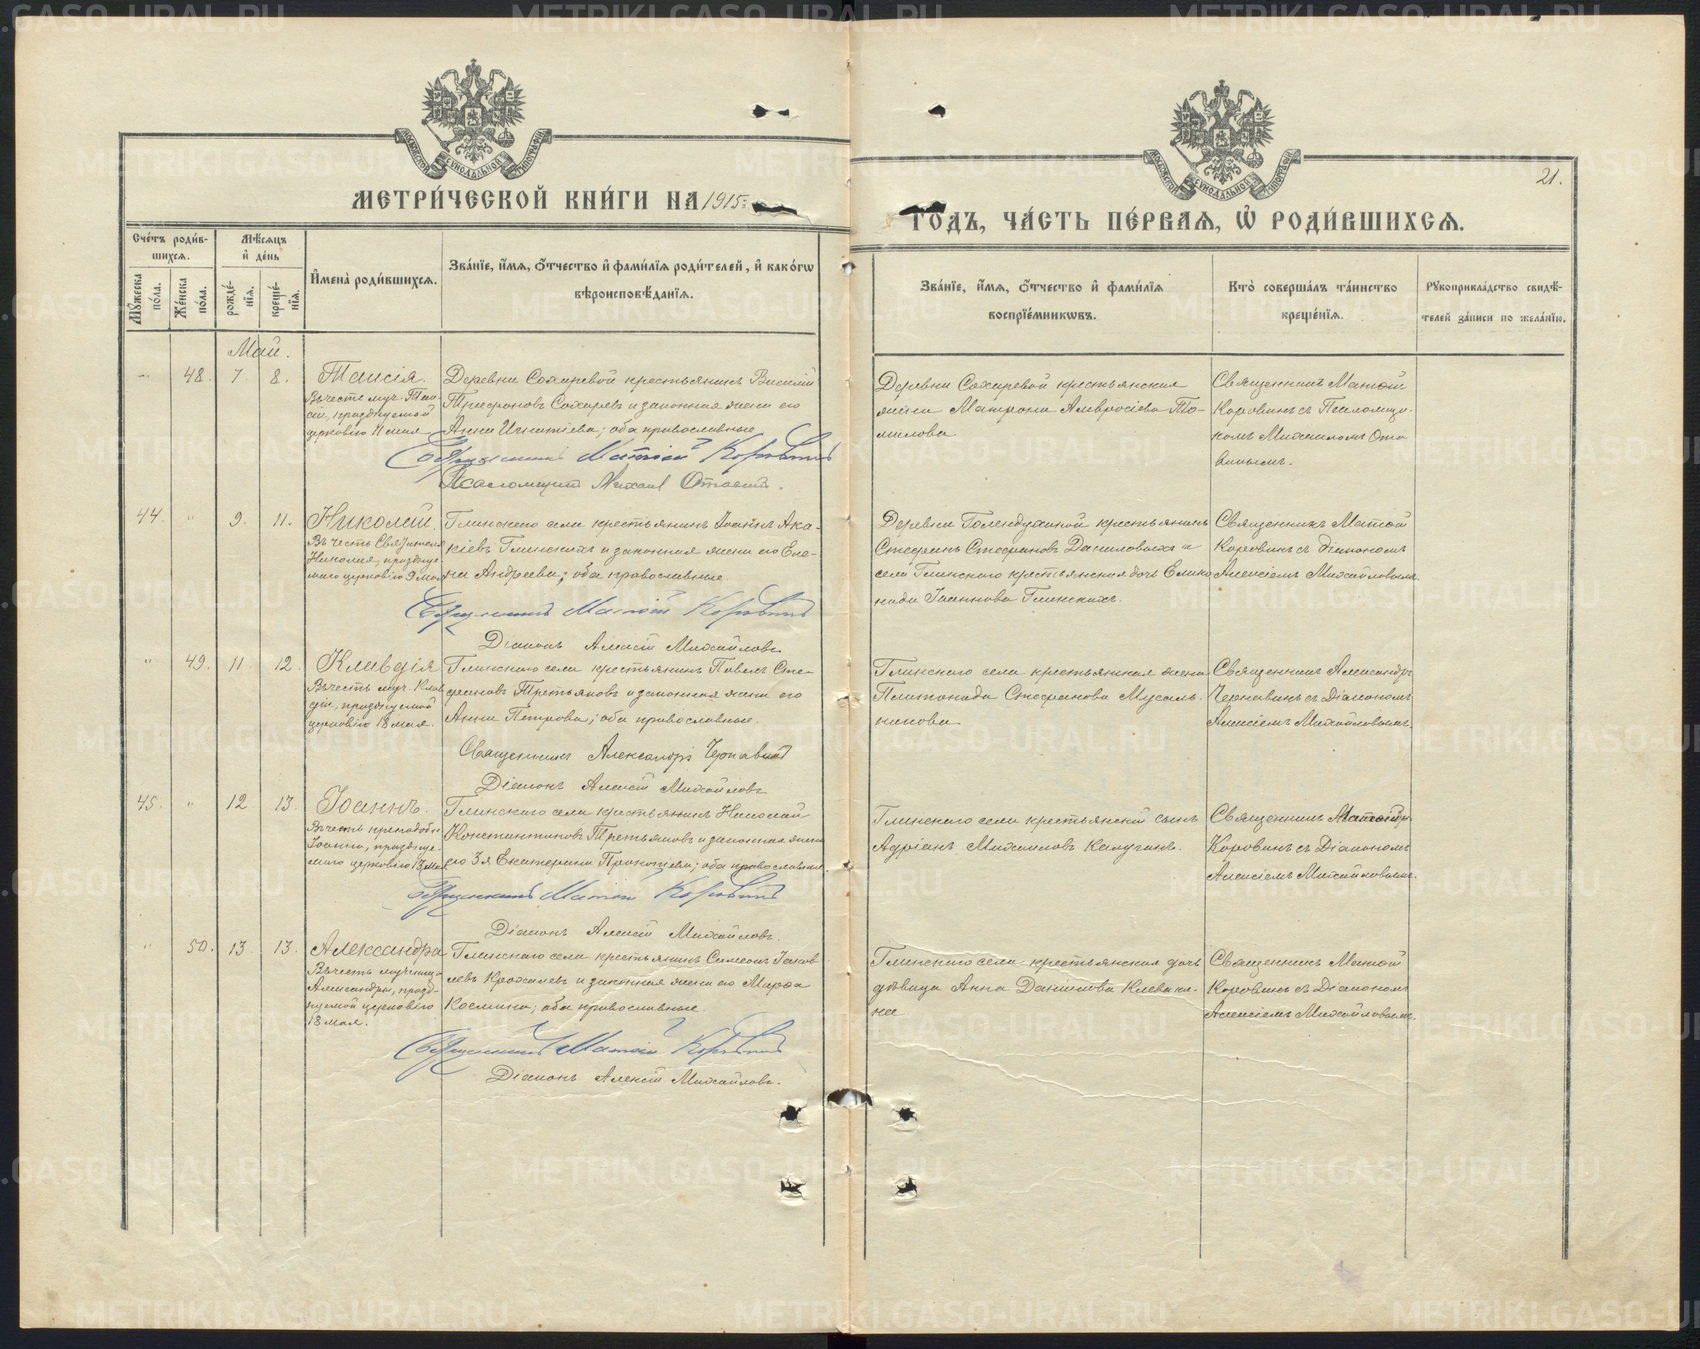 МЕТРИ́ЧЕСКОЙ КНИ́ГИ НА 1915
ГОДЪ, ЧА́СТЬ ПЕ́РВАЯ, Ѡ҆ РОДИ́ВШИХСЯ.
21.
Сче́тъ роди́в-
шихся.
Мѣ́сяцъ
и҆ де́нь
Му́жеска по́ла.
Же́нска по́ла.
рожде́-
нїя.
креще́-
нїя.
И҆мена̀ роди́вшихся.
Зва́нїе, и҆́мя, ѻ҆́тчество и҆ фами́лїя роди́телей, и҆ како́гѡ
вѣроисповѣ́данїя.
Зва́нїе, и҆́мя, ѻ҆́тчество и҆ фами́лїя
воспрїе́мниковъ.
Кто̀ соверша́лъ та́инство
креще́нїя.
Рукоприкла́дство свидѣ́-
телей за́писи по жела́нїю.
Май.
48. 7 8.
Таисія.
Въ честь муч. Таи-
сіи, празднуемой
церковію 11 мая
Деревни Сохаревой крестьянинъ Василій
Трифоновъ Сохаревъ и законная жена его
Анна Игнатіева; оба православные
Священникъ Матѳій Коровинъ
Псаломщикъ Михаил
Деревни Сохаревой крестьянская
жена Матрона Амвросіева То-
милова.
Священникъ Матѳій
Коровинъ съ Псаломщи-
комъ Михаиломъ
44. " 9. 11.
Николай.
Въ честь Святителя
Николая, праздну-
емаго церковію 9 мая
Глинскаго села крестьянинъ Іоаннъ Ака-
кіевъ Глинскихъ и законная жена его Еле-
на Андреева; оба православные
Священникъ Матѳій Коровинъ
Діаконъ Алексій Михайловъ
Деревни Голендухиной крестьянинъ
Стефанъ Стефановъ Даниловыхъ и
села Глинскаго крестьянская дочь
Іоаннова Глинскихъ.
Священникъ Матѳій
Коровинъ съ діакономъ
Алексіемъ Михайловымъ.
" 49. 11 12.
Клавдія
Въ честь муч. Клав-
діи, празднуемой
церковію 18 мая.
Глинскаго села крестьянинъ Павелъ Сте-
фановъ Третьяковъ и законная жена его
Анна Петрова; оба православные.
Священникъ Александръ Чернавинъ
Діаконъ Алексій Михайловъ
Глинскаго села крестьянская жена
Платонида Стефанова Мусаль-
никова
Священникъ Александръ
Чернавинъ съ Діакономъ
Алексіемъ Михайловымъ.
45. " 12 13.
Іоаннъ.
Въ честь преподобн.
Іоанна, праздну-
емаго церковію 13 мая
Глинскаго села крестьянинъ Николай
Константиновъ Третьяковъ и законная жена
его Екатерина Прокопіева; оба православные.
Священникъ Матѳій Коровинъ
Діаконъ Алексій Михайловъ.
Глинскаго села крестьянскій сынъ
Адріанъ Михаиловъ Калугинъ.
Священникъ
Коровинъ съ Діакономъ
Алексіемъ Михайловымъ.
" 50. 13 13.
Александра
Въ честь мученицы
Александры, празд-
нуемой церковію
18 мая.
Глинскаго села крестьянинъ Симеонъ Іаков-
левъ Крохалевъ и законная жена его Марѳа
Космина; оба православные.
Священникъ Матѳій Коровинъ
Діаконъ Алексій Михайловъ.
Глинскаго села крестьянская дочь
дѣвица Анна Данилова Клевакі-
на
Священникъ Матѳій
Коровинъ съ Діакономъ
Алексіемъ Михайловымъ.
METRIKI.GASO-URAL.RU